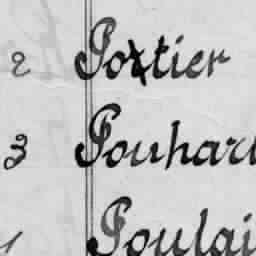 2 Portier
3 Pouhar
1 Poulai